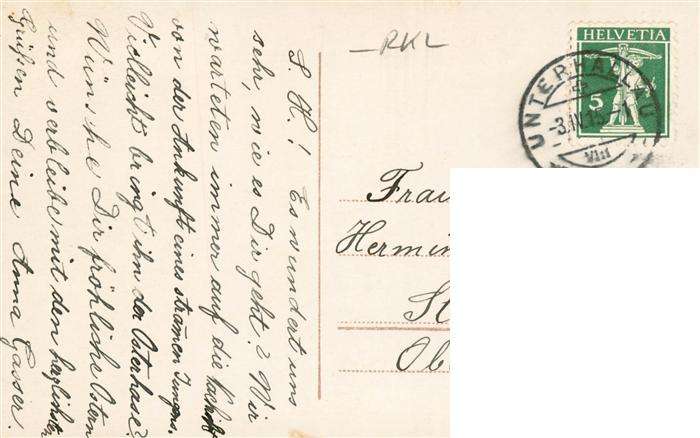 L. H.! Es wundert uns
sehr, wie es Dir geht? Wir
warteten immer auf die Nachricht
von der Ankunft eines strammen Jungens.
Vielleicht bringt ihn der Osterhase?
Wünsche Dir fröhliche Ostern
und verbleibe mit den herzlichsten
Grüßen Deine Anna Gasser.
RKL
HELVETIA
5
UNTERHALLAU
-3.IV.15.-1
VIII
Frau
Hermin
St
Obe